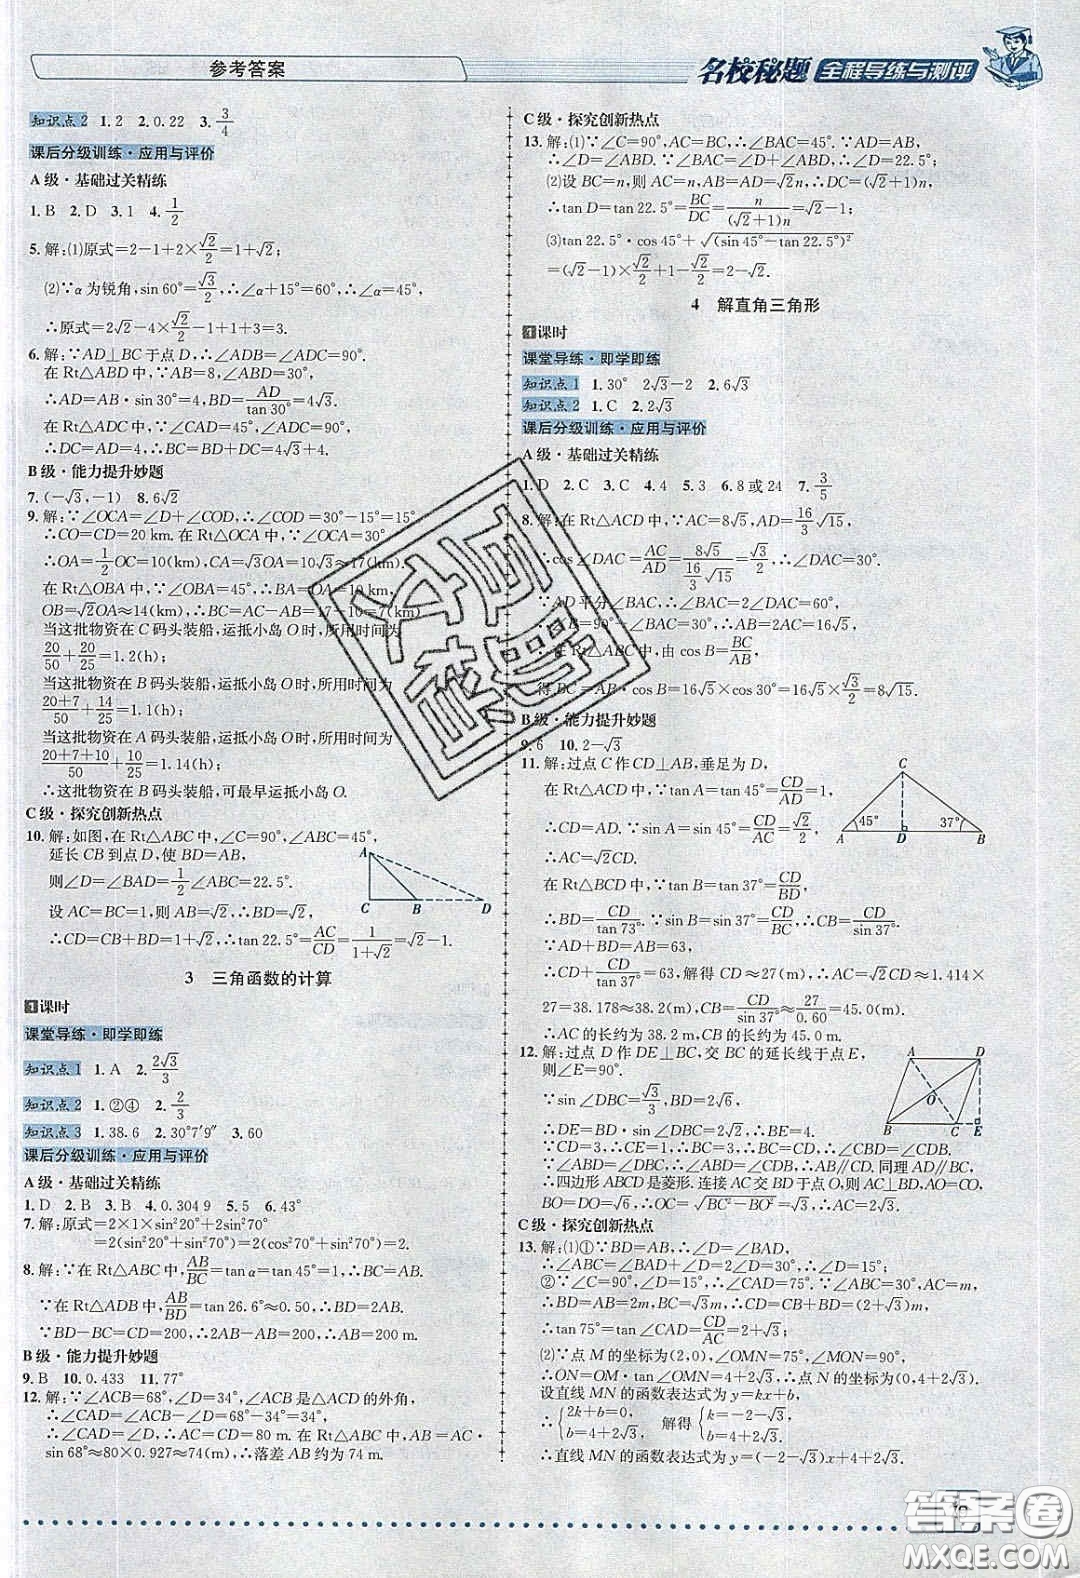 参考答案
名校秘题 全程导练与测评
知识点2 1.2 2.0.22 3.3/4
课后分级训练·应用与评价
A级·基础过关精练
1.B 2.D 3.1 4.1/2
5.解:(1)原式=2-1+2×√2/2=1+√2;
(2)∵α为锐角,sin60°=√3/2,∴α+15°=60°,∴α=45°,
∴原式=2√2-4×√2/2-1+1=0.
6.解:∵AD⊥BC于点D,∴∠ADB=∠ADC=90°.
在Rt△ABD中,∵AB=8,∠ABD=30°,
∴AD=AB·sin30°=4,BD=AD/tan30°=4√3.
在Rt△ADC中,∵∠CAD=45°,∠ADC=90°,
∴DC=AD=4,∴BC=BD+DC=4√3+4.
B级·能力提升妙题
7.(-√3,-1) 8.6√2
9.解:∵∠OCA=∠D+∠COD,∴∠COD=30°-15°=15°,
∴CO=CD=20 km.在Rt△OCA中,∵∠OCA=30°,
∴OA=1/2OC=10(km),CA=√3OA=10√3≈17(km).
在Rt△OBA中,∵∠OBA=45°,∴BA=OA=10 km,
OB=√2OA≈14(km),∴BC=AC-AB=17-10=7(km).
当这批物资在C码头装船,运抵小岛O时,所用时间为
20/50+20/25=1.2(h);
当这批物资在B码头装船,运抵小岛O时,所用时间为
20+7/50+14/25=1.1(h);
当这批物资在A码头装船,运抵小岛O时,所用时间为
20+7+10/50+10/25=1.14(h);
∴这批物资在B码头装船,可最早运抵小岛O.
C级·探究创新热点
10.解:如图,在Rt△ABC中,∠C=90°,∠ABC=45°,
延长CB到点D,使BD=AB,
则∠D=∠BAD=1/2∠ABC=22.5°.
设AC=BC=1,则AB=BD=√2.
∴CD=CB+BD=1+√2,∴tan22.5°=AC/CD=1/(1+√2)=√2-1.
A
C B D
3 三角函数的计算
1课时
课堂导练·即学即练
知识点1 1.A 2.2√3/3
知识点2 1.②④ 2.2/3
知识点3 1.38.6 2.30°7′9″ 3.60
课后分级训练·应用与评价
A级·基础过关精练
1.D 2.B 3.B 4.0.3049 5.5 6.43°
7.解:原式=2×1×sin²20°+2sin²70°
=2(sin²20°+sin²70°)=2(sin²20°+cos²20°)=2.
8.解:∵在Rt△ABC中,AB/BC=tanα=tan45°=1,∴BC=AB.
∵在Rt△ADB中,AB/BD=tan26.6°≈0.50,∴BD=2AB.
∵BD-BC=CD=200,∴2AB-AB=200,∴AB=200 m.
B级·能力提升妙题
9.B 10.0.433 11.77°
12.解:∵∠ACB=68°,∠D=34°,∠ACB是△ACD的外角,
∴∠CAD=∠ACB-∠D=68°-34°=34°,
∴∠CAD=∠D,∴AC=CD=80 m.在Rt△ABC中,AB=AC·
sin68°≈80×0.927≈74(m),∴落差AB约为74 m.
C级·探究创新热点
13.解:(1)∵∠C=90°,AC=BC,∴∠BAC=45°.∵AD=AB,
∴∠D=∠ABD.∵∠BAC=∠D+∠ABD,∴∠D=22.5°;
(2)设BC=n,则AC=n,∴AB=AD=√2n,∴DC=(√2+1)n,
∴tanD=tan22.5°=BC/DC=n/((√2+1)n)=√2-1;
(3)tan22.5°·cos45°+√(sin45°-tan22.5°)²
=(√2-1)×√2/2-√2/2+1=2-√2.
4 解直角三角形
1课时
课堂导练·即学即练
知识点1 1.30° 2√3-2 2.6√3
知识点2 1.C 2.2√3
课后分级训练·应用与评价
A级·基础过关精练
1.D 2.C 3.C 4.4 5.3 6.8或24 7.3/5
8.解:在Rt△ACD中,∵AC=8√5,AD=16/3√15,
∴cos∠DAC=AC/AD=8√5/(16/3√15)=√3/2,∴∠DAC=30°.
∵AD平分∠BAC,∴∠BAC=2∠DAC=60°,
∴∠B=90°-∠BAC=30°,∴AB=2AC=16√5,
在Rt△ABC中,由cosB=BC/AB,
得BC=AB·cosB=16√5×cos30°=16√5×√3/2=8√15.
B级·能力提升妙题
9.6 10.2-√3
11.解:过点C作CD⊥AB,垂足为D.
在Rt△ACD中,∵tanA=tan45°=CD/AD=1,
∴CD=AD.∵sinA=sin45°=CD/AC=√2/2,
∴AC=√2CD.
在Rt△BCD中,∵tanB=tan37°=CD/BD,
∴BD=CD/tan73°.∵sinB=sin37°=CD/BC,∴CB=CD/sin37°.
∵AD+BD=AB=63,
∴CD+CD/tan37°=63,解得CD≈27(m),∴AC=√2CD≈1.414×
27=38.178≈38.2(m),CB=CD/sin37°≈27/0.60=45.0(m).
∴AC的长约为38.2 m,CB的长约为45.0 m.
C
45° 37°
A D B
12.解:过点D作DE⊥BC,交BC的延长线于点E,
则∠E=90°.
∵sin∠DBC=√3/3,BD=2√6,
∴DE=BD·sin∠DBC=2√2,∴BE=4.
∵CD=3,∴CE=1,∴BC=3,∴BC=CD,∴∠CBD=∠CDB.
∵∠ABD=∠DBC,∴∠ABD=∠CDB,∴AB∥CD.同理AD∥BC,
∴四边形ABCD是菱形.连接AC交BD于点O,则AC⊥BD,AO=CO,
BO=DO=√6,∴OC=√BC²-BO²=√3,∴AC=2√3.
A D
O
B C E
C级·探究创新热点
13.解:(1)①∵BD=AB,∴∠D=∠BAD,
∴∠ABC=∠BAD+∠D=2∠D=30°,∴∠D=15°;
②∵∠C=90°,∠D=15°,∴∠CAD=75°.∵∠ABC=30°,AC=m,
∴BD=AB=2m,BC=√3m,∴CD=CB+BD=(2+√3)m,
∴tan75°=tan∠CAD=CD/AC=2+√3;
(2)∵点M的坐标为(2,0),∠OMN=75°,∠MON=90°,
∴ON=OM·tan∠OMN=4+2√3,∴点N的坐标为(0,4+2√3).
设直线MN的函数表达式为y=kx+b,
∴{2k+b=0, b=4+2√3, 解得{k=-2-√3, b=4+2√3.
∴直线MN的函数表达式为y=(-2-√3)x+4+2√3.
答案卷
MXQE.COM